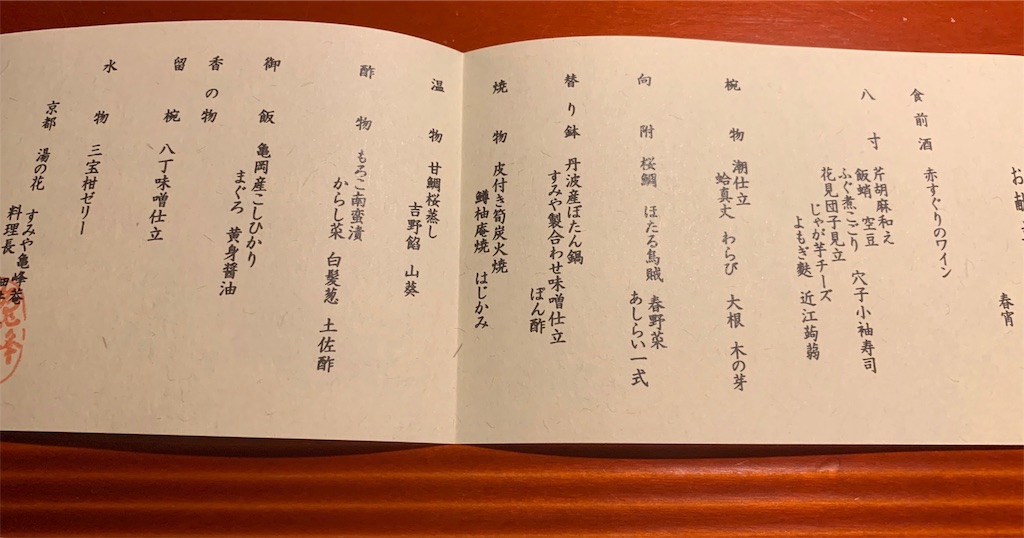 お献立
春宵
食前酒 赤すぐりのワイン
八寸 芹胡麻和え
飯蛸 空豆 穴子小袖寿司
ふぐ煮こごり
花見団子見立
じゃが芋チーズ
よもぎ麩 近江蒟蒻
椀物 潮仕立
蛤真丈 わらび 大根 木の芽
向附 桜鯛 ほたる烏賊 春野菜
あしらい一式
替り鉢 丹波産ぼたん鍋
すみや製合わせ味噌仕立
ぽん酢
焼物 皮付き筍炭火焼
鱒柚庵焼 はじかみ
温物 甘鯛桜蒸し
吉野餡 山葵
酢物 もろこ南蛮漬
からし菜 白髪葱 土佐酢
御飯 亀岡産こしひかり
香の物 まぐろ 黄身醤油
留椀 八丁味噌仕立
水物 三宝柑ゼリー
京都 湯の花 すみや亀峰菴
料理長